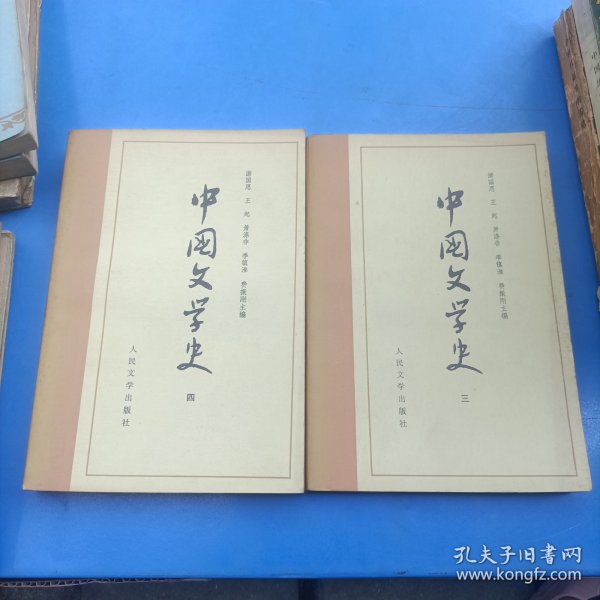 中国文学史
游国恩 王起 萧涤非 季镇淮 费振刚主编
人民文学出版社
四
中国文学史
游国恩 王起 萧涤非 季镇淮 费振刚主编
人民文学出版社
三
孔夫子旧书网
www.kongfz.com